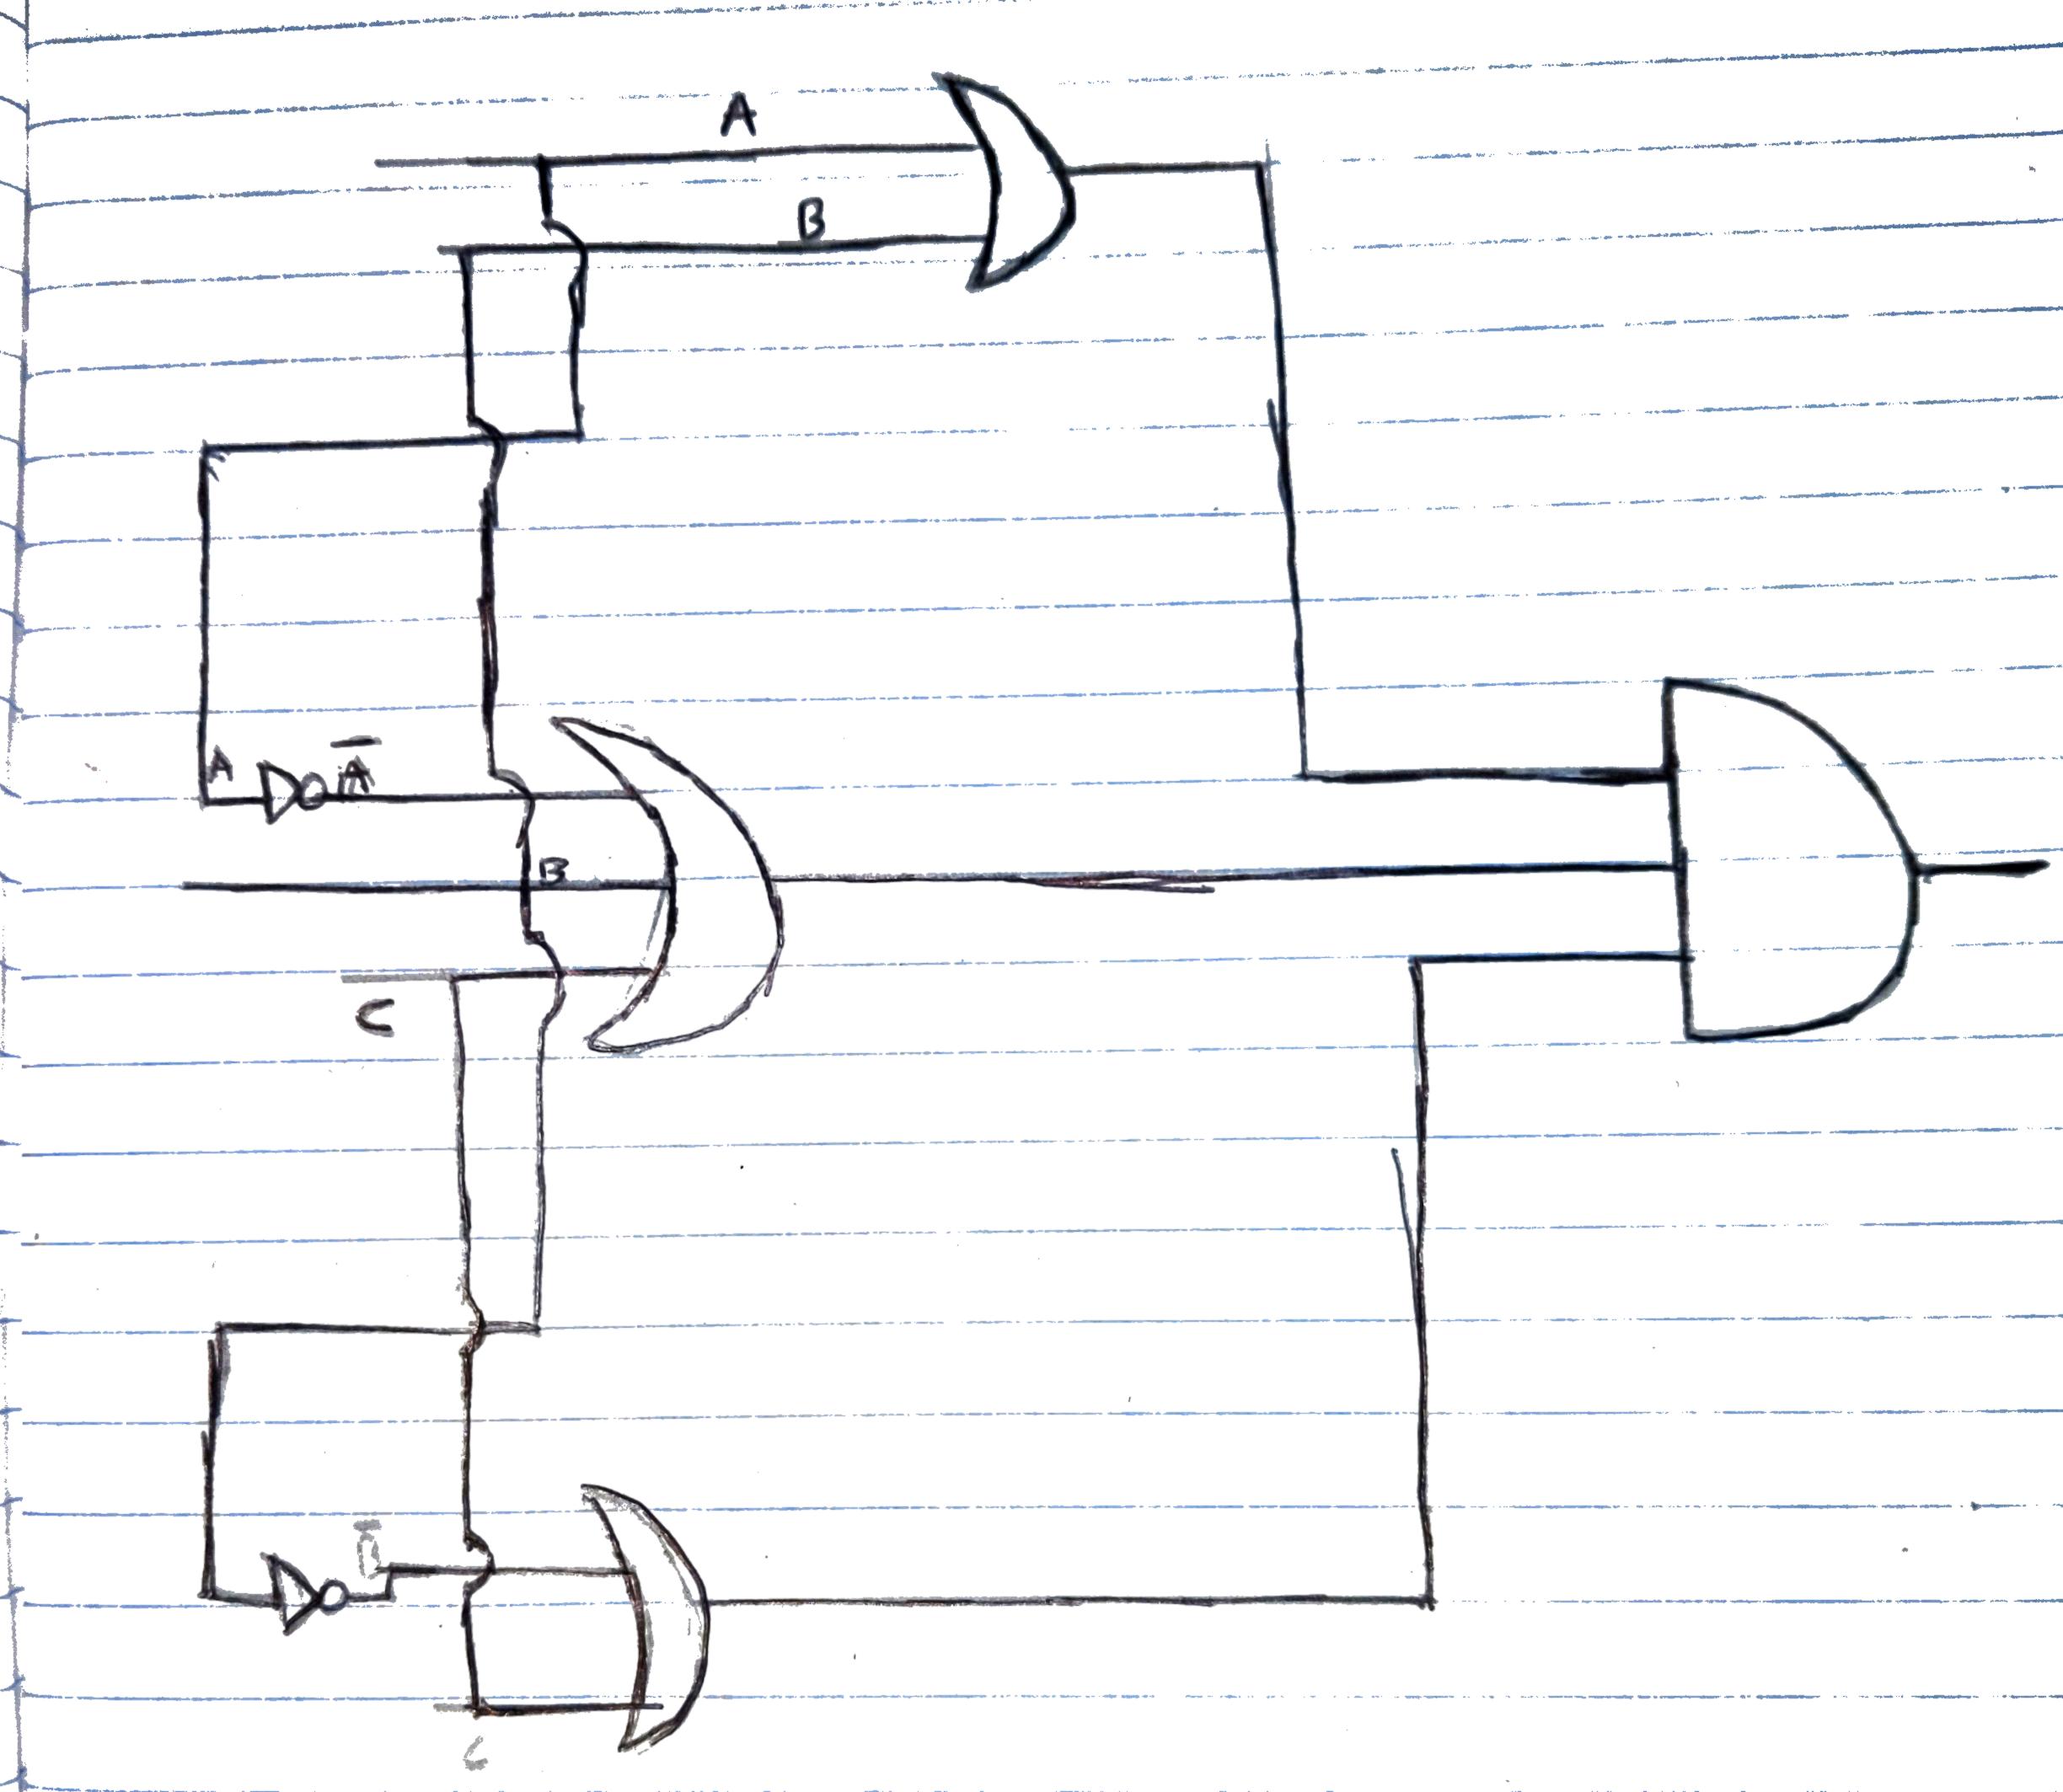 A
B
A
A̅
B
C
B̅
C